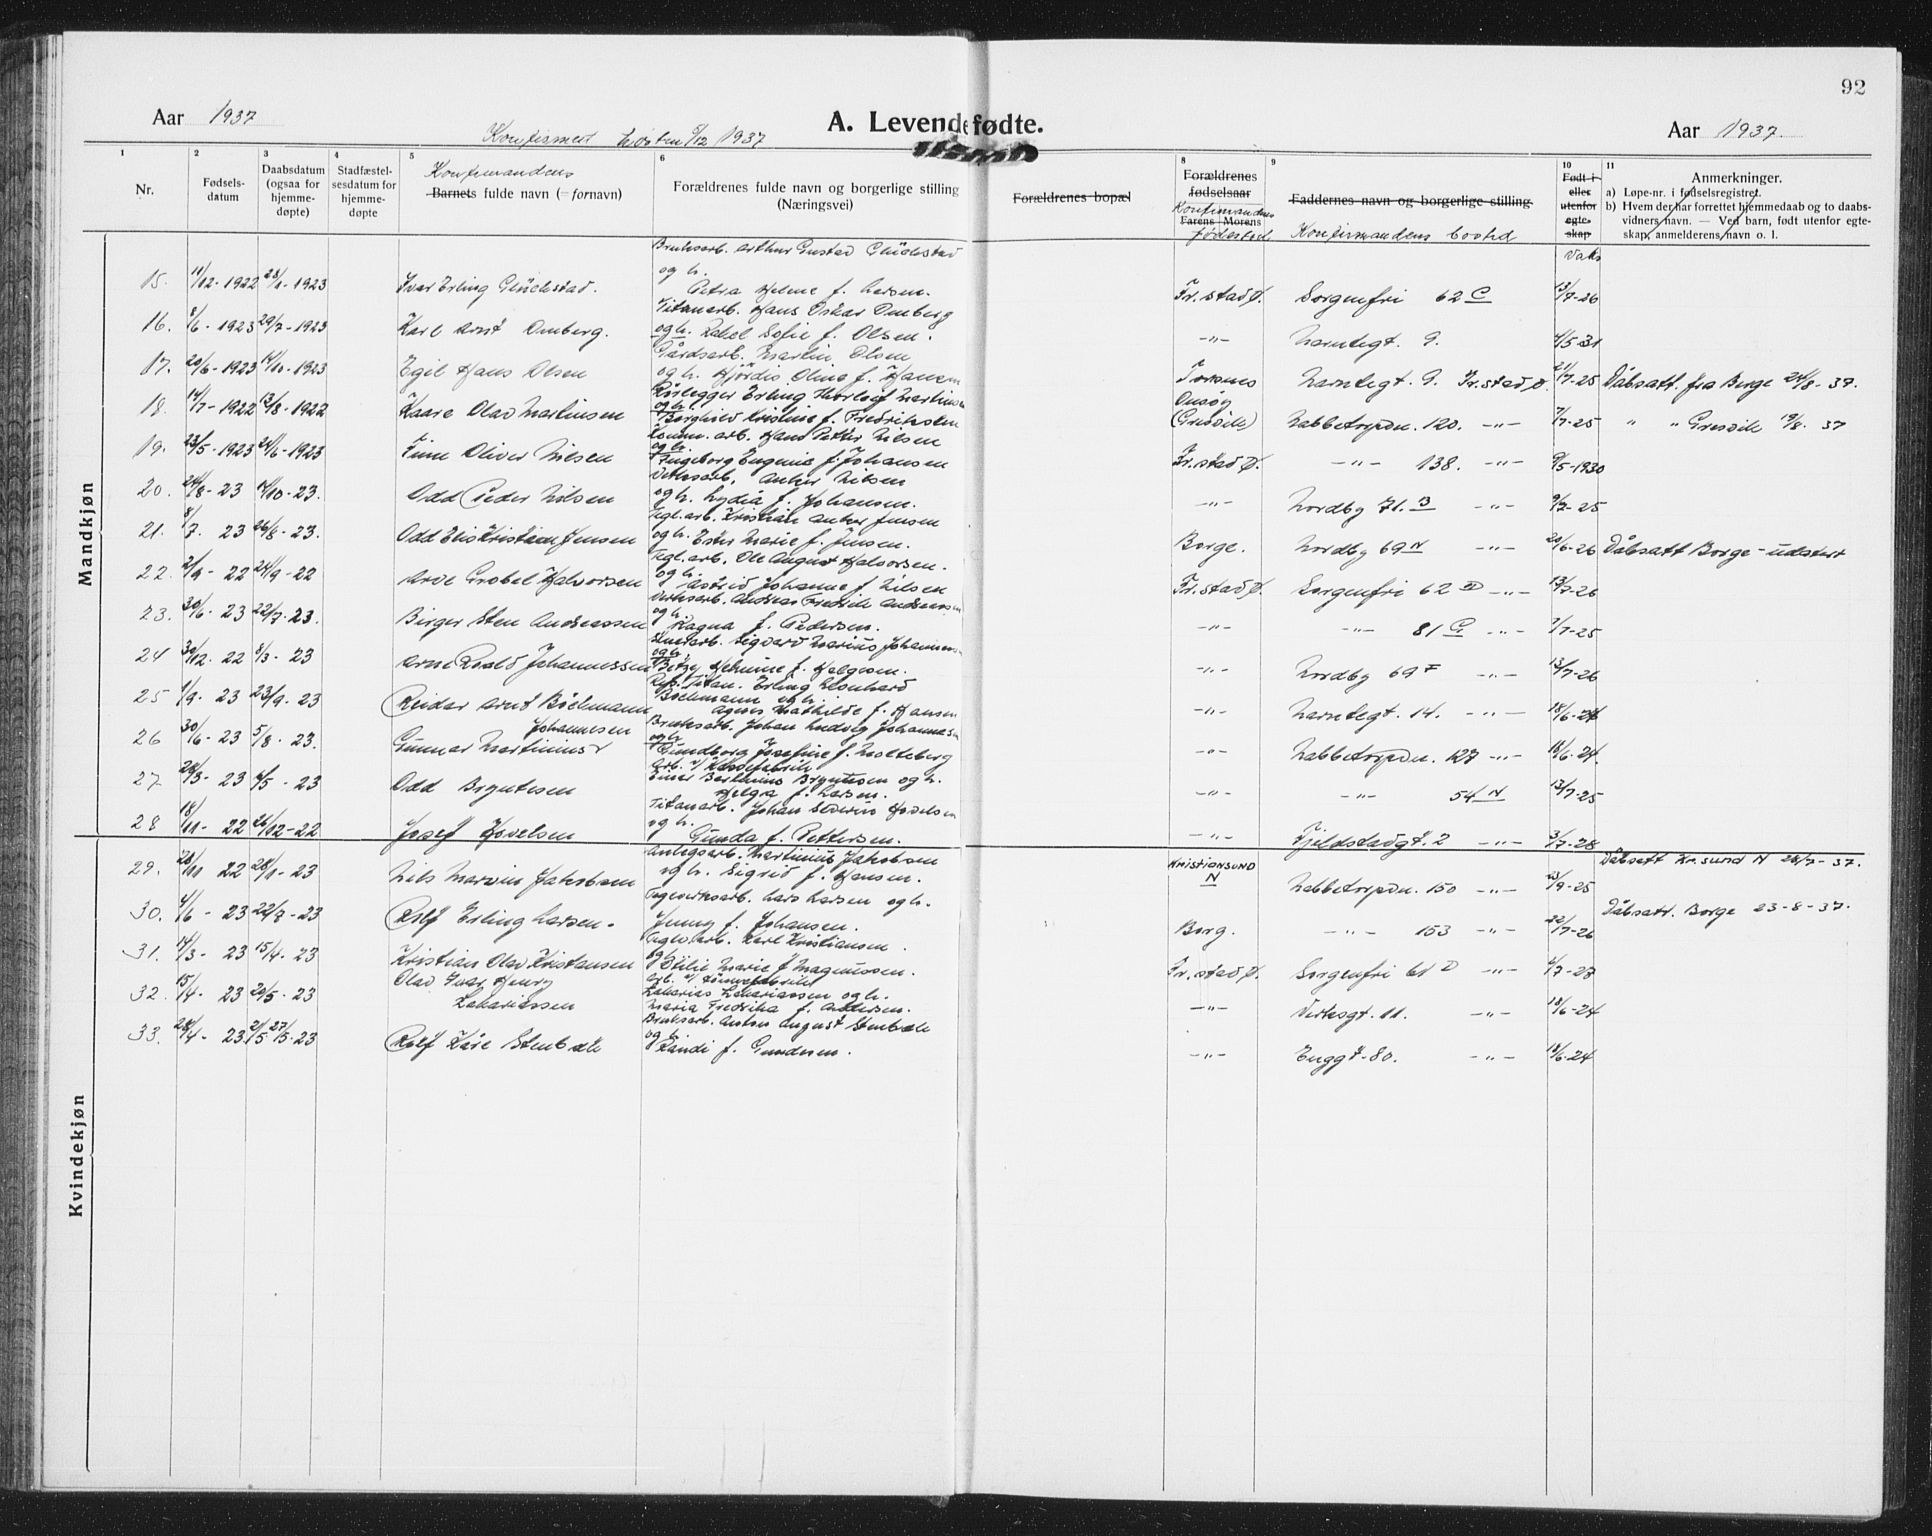 92
Aar 1937
A. Levendefødte.
Aar 1937.
Konfirmert høsten 5/12 1937
1
Nr.
2
Fødsels-
datum
3
Daabsdatum
(ogsaa for
hjemme-
døpte)
4
Stadfæstel-
sesdatum for
hjemme-
døpte
5
Konfirmandens
Barnets fulde navn (= fornavn)
6
Forældrenes fulde navn og borgerlige stilling
(Næringsvei)
Forældrenes bopæl
8
Forældrenes
fødselsaar
Konfirmandens
Farens Morens
fødested
9
Faddernes navn og borgerlige stilling
Konfirmandens bosted
10
Født i
eller
utenfor
egte-
skap
11
Anmerkninger.
a) Løpe-nr. i fødselsregistret.
b) Hvem der har forrettet hjemmedaab og to daabs-
vidners navn. — Ved barn, født utenfor egte-
skap, anmelderens navn o. l.
Vaks
Mandkjøn
Bruksarb. Arthur Gustav Glückstad
og h.
15. 11/12-1922 28/1-1923 Ivar Erling Glückstad. Petra Helene f. Larsen. Fr.stad Ø. Sorgenfri 62 C 13/7-26
Titanarb. Hans Oskar Omberg
16. 8/6-1923 29/7-1923 Karl Arnt Omberg. og h. Rakel Sofie f. Olsen. -"- Narntegt. 9. 4/5-31
Gårdsarb. Martin Olsen
17. 20/6-1923 14/10-1923 Egil Hans Olsen og h. Hjördis Oline f. Hansen Torsnes Narntegt. 9. Fr.stad Ø. 21/7-25 Dåbsatt. fra Borge 24/8-37.
Rørlegger Erling Thorleif Martinsen
og h.
18. 14/7-1922 13/8-1922 Kaare Olav Martinsen Borghild Kristine f. Fredriksen Onsøy
(Gressvik) Nabbetorpvn. 120. -"- 7/7-25 " " Gressvik 19/8-37
Komm. arb. Hans Petter Nilsen
og h.
19. 23/5-1923 24/6-1923 Finn Oliver Nilsen Ingeborg Eugenie f. Johansen Fr.stad Ø. -"- 138. -"- 9/5-1930
Verksarb. Anker Nilsen
20. 24/8-23 14/10-23. Odd Peder Nilsen og h. Lydia f. Johansen. -"- Nordby 71. B -"- 9/7-25
Tegl.arb. Kristian Anker Jensen
21. 8/7. 23 26/8-23. Odd Elis Kristian Jensen og h. Ester Marie f. Jensen. Borge. Nordby 69 N -"- 20/6-26 Dåbsatt Borge - udatert
Tegl.arb. Ole August Halvorsen.
og h.
22. 2/9-22 24/9-22 Arve Halvorsen Astrid Johanne f. Nilsen Fr.stad Ø. Sorgenfri 62 D -"- 13/7-26
Verksarb. Andreas Fredrik Andreassen
og h.
23. 30/6-23 22/7-23. Birger Sten Andreassen Ragna f. Pedersen. -"- -"- 81 G -"- 7/7-25
Sigvard Marius Johannessen
og h.
24 30/12. 22 8/3-23 Arne Johannessen Betzy Helmine f. Helgesen. -"- Nordby 69 F -"- 13/7-26
Rep. Titan. Erling Leonhard
Böckmann og h.
25 1/9. 23 23/9. 23 Reidar Arnt Böckmann Agnes Mathilde f. Hansen -"- Narntegt. 14. -"- 18/6-24
Bruksarb. Johan Ludvig Johannesen
og h.
26 30/6-23 5/8. 23. Gunnar Martinius Johannesen Gundborg Josefine f. Molteberg -"- Nabbetorpvn. 127 -"- 18/6-24.
Arb. v/
Einar Bryntesen og h.
27 28/3-23 4/5-23 Odd Bryntesen Helga f. Larsen. -"- -"- 54 N 13/7-25
Titanarb. Johan Severin Hovelsen
og h.
28 18/11-22 26/12-22 Josef Hovelsen Gunda f. Pettersen. -"- Fjeldstadgt. 2 -"- 3/7-28
Kvindekjøn
Anlegsarb. Martinius Jakobsen
29. 28/11 22 28/1-23 Nils Marvin Jakobsen og h. Sigrid f. Hansen. Kristiansund
N Nabbetorpvn. 150 -"- 23/9-25 Dåbsatt Kr.sund N 28/7-37.
Teglverksarb. Lars Larsen og h.
30. 4/6-23 22/7-23 Rolf Erling Larsen. Jenny f. Johansen. Borg. -"- 153 -"- 22/7-26 Dåbsatt. Borge 23-8-37.
Teglv.arb. Karl Kristiansen.
og h.
31. 14/3-23 15/4-23 Kristian Olav Kristiansen Otilie Marie f. Magnussen. Fr.stad Ø. Sorgenfri 61 D -"- 4/7-27
Olav Ivar Henry
Zakarias Zakariassen og h.
32. 15/4-23 20/5-23 Zakariassen Maria Fredrika f. Andersen. -"- Verksgt. 11. -"- 18/6-24
Bruksarb. Anton August Stenbæk
og h.
33. 28/4-23. 21/5 27/5-23 Rolf Kåre Stenbæk Randi f. Gundersen. -"- Enggt. 80. -"- 18/6-24